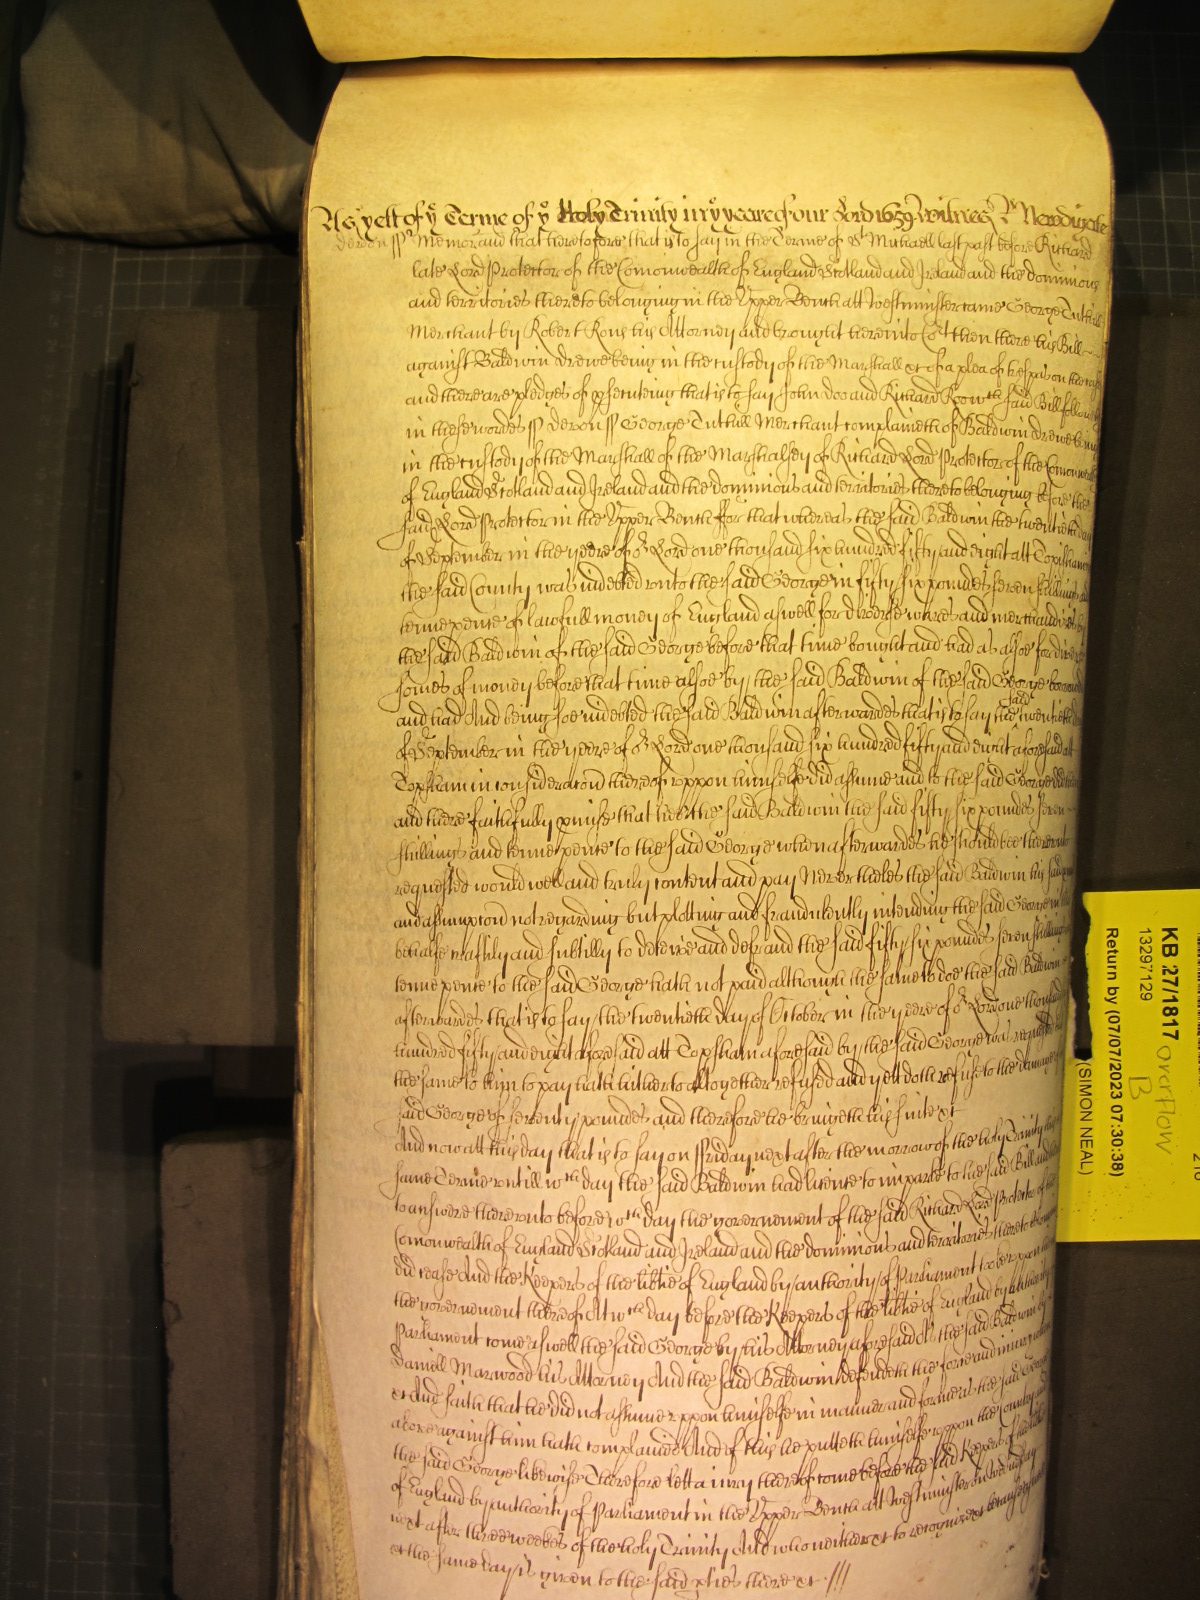 As yett of ye Terme of ye Holy Trinity in ye yeare of our Lord 1659 Witnes R: Newdigate
Devon ss Memorand that heretofore that is to say in the Terme of St Michaell last past before Richard
late Lord Protector of the Comonwealth of England Scotland and Ireland and the dominions
and territories thereto belonging in the Upper Bench att Westminster came George Tuthill
Merchant by Robert Rous his Attorney and brought here into Cot then there his Bill
against Baldwin Drewe being in the custody of the Marshall &c of a plea of trespas on the case
and there are pledges of psecuteing that is to say John Doo and Richard Roo wch said Bill followeth
in these wordes ss Devon ss George Tuthill Merchant complaineth of Baldwin Drewe being
in the custody of the Marshall of the Marshalsey of Richard Lord Protector of the Comonwealth
of England Scotland and Ireland and the dominions and territories thereto belonging before the
said Lord Protector in the Upper Bench ffor that whereas the said Baldwin the twentieth day
of September in the yeere of or Lord one thousand six hundred fifty and eight att Topisham in
the said County was indebted unto the said George in fifty six poundes seven shillings and
tenne pence of lawfull money of England aswell for diverse wares and merchandizes by
the said Baldwin of the said George before that time bought and had as alsoe for diverse
somes of money before that time alsoe by the said Baldwin of the said George borrowed
and had And being soe indebted the said Baldwin afterwardes that is to say the said twentieth day
of September in the yeere of or Lord one thousand six hundred fifty and eight aforesaid att
Topsham in consideracon thereof uppon himselfe did assume and to the said George did then
and there faithfully pmise that hee the said Baldwin the said fifty six poundes seven
shillings and tenne pence to the said George when afterwardes he should bee thereunto
requested would well and truly content and pay Nevertheles the said Baldwin his said
and assumpcon not regarding but plotting and fraudulently intending the said George in this
behalfe craftily and subtilly to deceive and defraud the said fifty six poundes seven shillings
tenne pence to the said George hath not paid although the same to doe the said Baldwin
afterwardes that is to say the twentieth day of October in the yeere of or Lord one thousand
hundred fifty and eight aforesaid att Topsham aforesaid by the said George was requested but
the same to him to pay hath hitherto altogether refused and yett doth refuse to the damage of the
said George of seventy poundes and therefore he bringeth his suite &c
And now att this day that is to say on ffriday next after the morrow of the holy Trinity this
same Terme untill wch day the said Baldwin had licence to imparle to the said Bill and then
to answere thereunto before wch day the governement of the said Richard Lord Protector of the
Comonwealth of England Scotland and Ireland and the dominions and territories thereto belonging
did cease And the Keepers of the libtie of England by authority of Parliament tooke uppon them
the governement thereof At wch day before the Keepers of the libtie of England by authority of
Parliament come aswell the said George by his Attorney aforesaid As the said Baldwin by
Daniell Marwood his Attorney And the said Baldwin defendeth the force and iniury when
&c And saith that he did not assume uppon himselfe in manner and forme as the said George
above against him hath complained And of this he putteth himselfe uppon the Country and
the said George likewise Therefore lett a iury thereof come before the said Keepers of the libtie
of England by authority of Parliament in the Upper Bench att Westminster on Wednesday
next after three weekes of the holy Trinity And who neither &c to recognize &c because aswell
&c the same day is given to the said pties there &c
KB 27/1817 overflow
13297129 B
Return by (07/07/2023 07:30:38)
(SIMON NEAL)